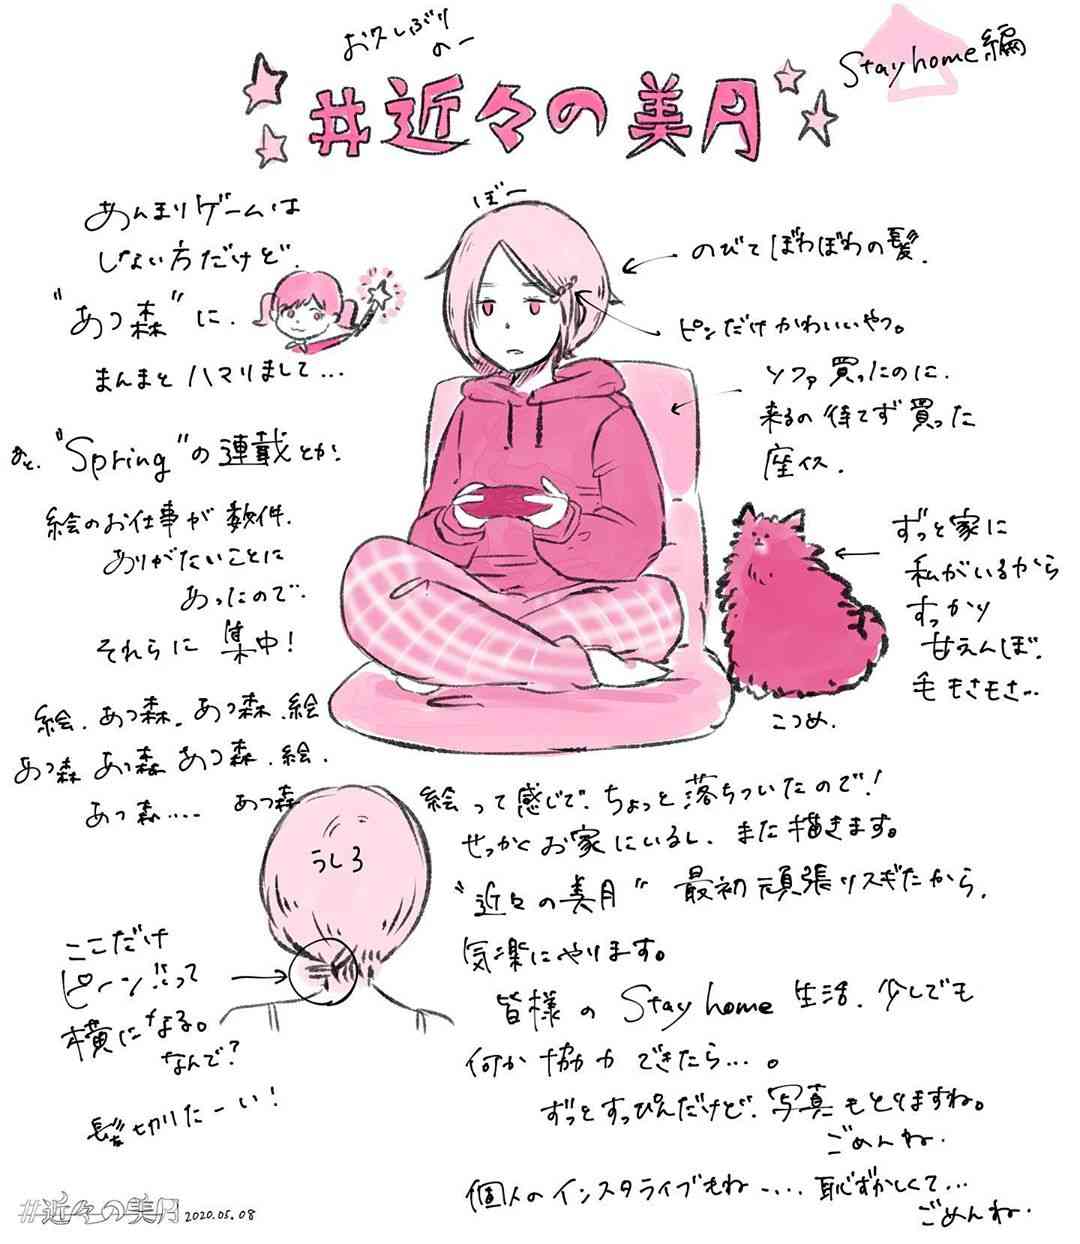 お久しぶり
のー
#近々の美月
Stay home編
あんまりゲームは
しない方だけど、
"あつ森"に、
まんまとハマりまして…
あと、"Spring"の連載とか、
絵のお仕事が数件、
ありがたいことに
あったので、
それらに集中!
絵、あつ森、あつ森、絵
あつ森 あつ森 あつ森、絵、
あつ森‥‥ あつ森
ぼー
のびてぼわぼわの髪。
ピンだけかわいいやつ。
ソファ買ったのに、
来るの待てず買った
座イス。
ずっと家に
私がいるから
すっかり
甘えんぼ。
毛もさもさ‥
こつめ。
うしろ
ここだけ
ピーン!!って
横になる。
なんで?
髪切りたーい!
絵って感じで、ちょっと落ちついたので!
せっかくお家にいるし、また描きます。
"近々の美月" 最初頑張りスギたから、
気楽にやります。
皆様の Stay home 生活、少しでも
何か協力できたら…。
ずっとすっぴんだけど、写真もとりますね。
ごめんね。
個人のインスタライブもね‥‥恥ずかしくて…
ごめんね。
#近々の美月 2020.05.08